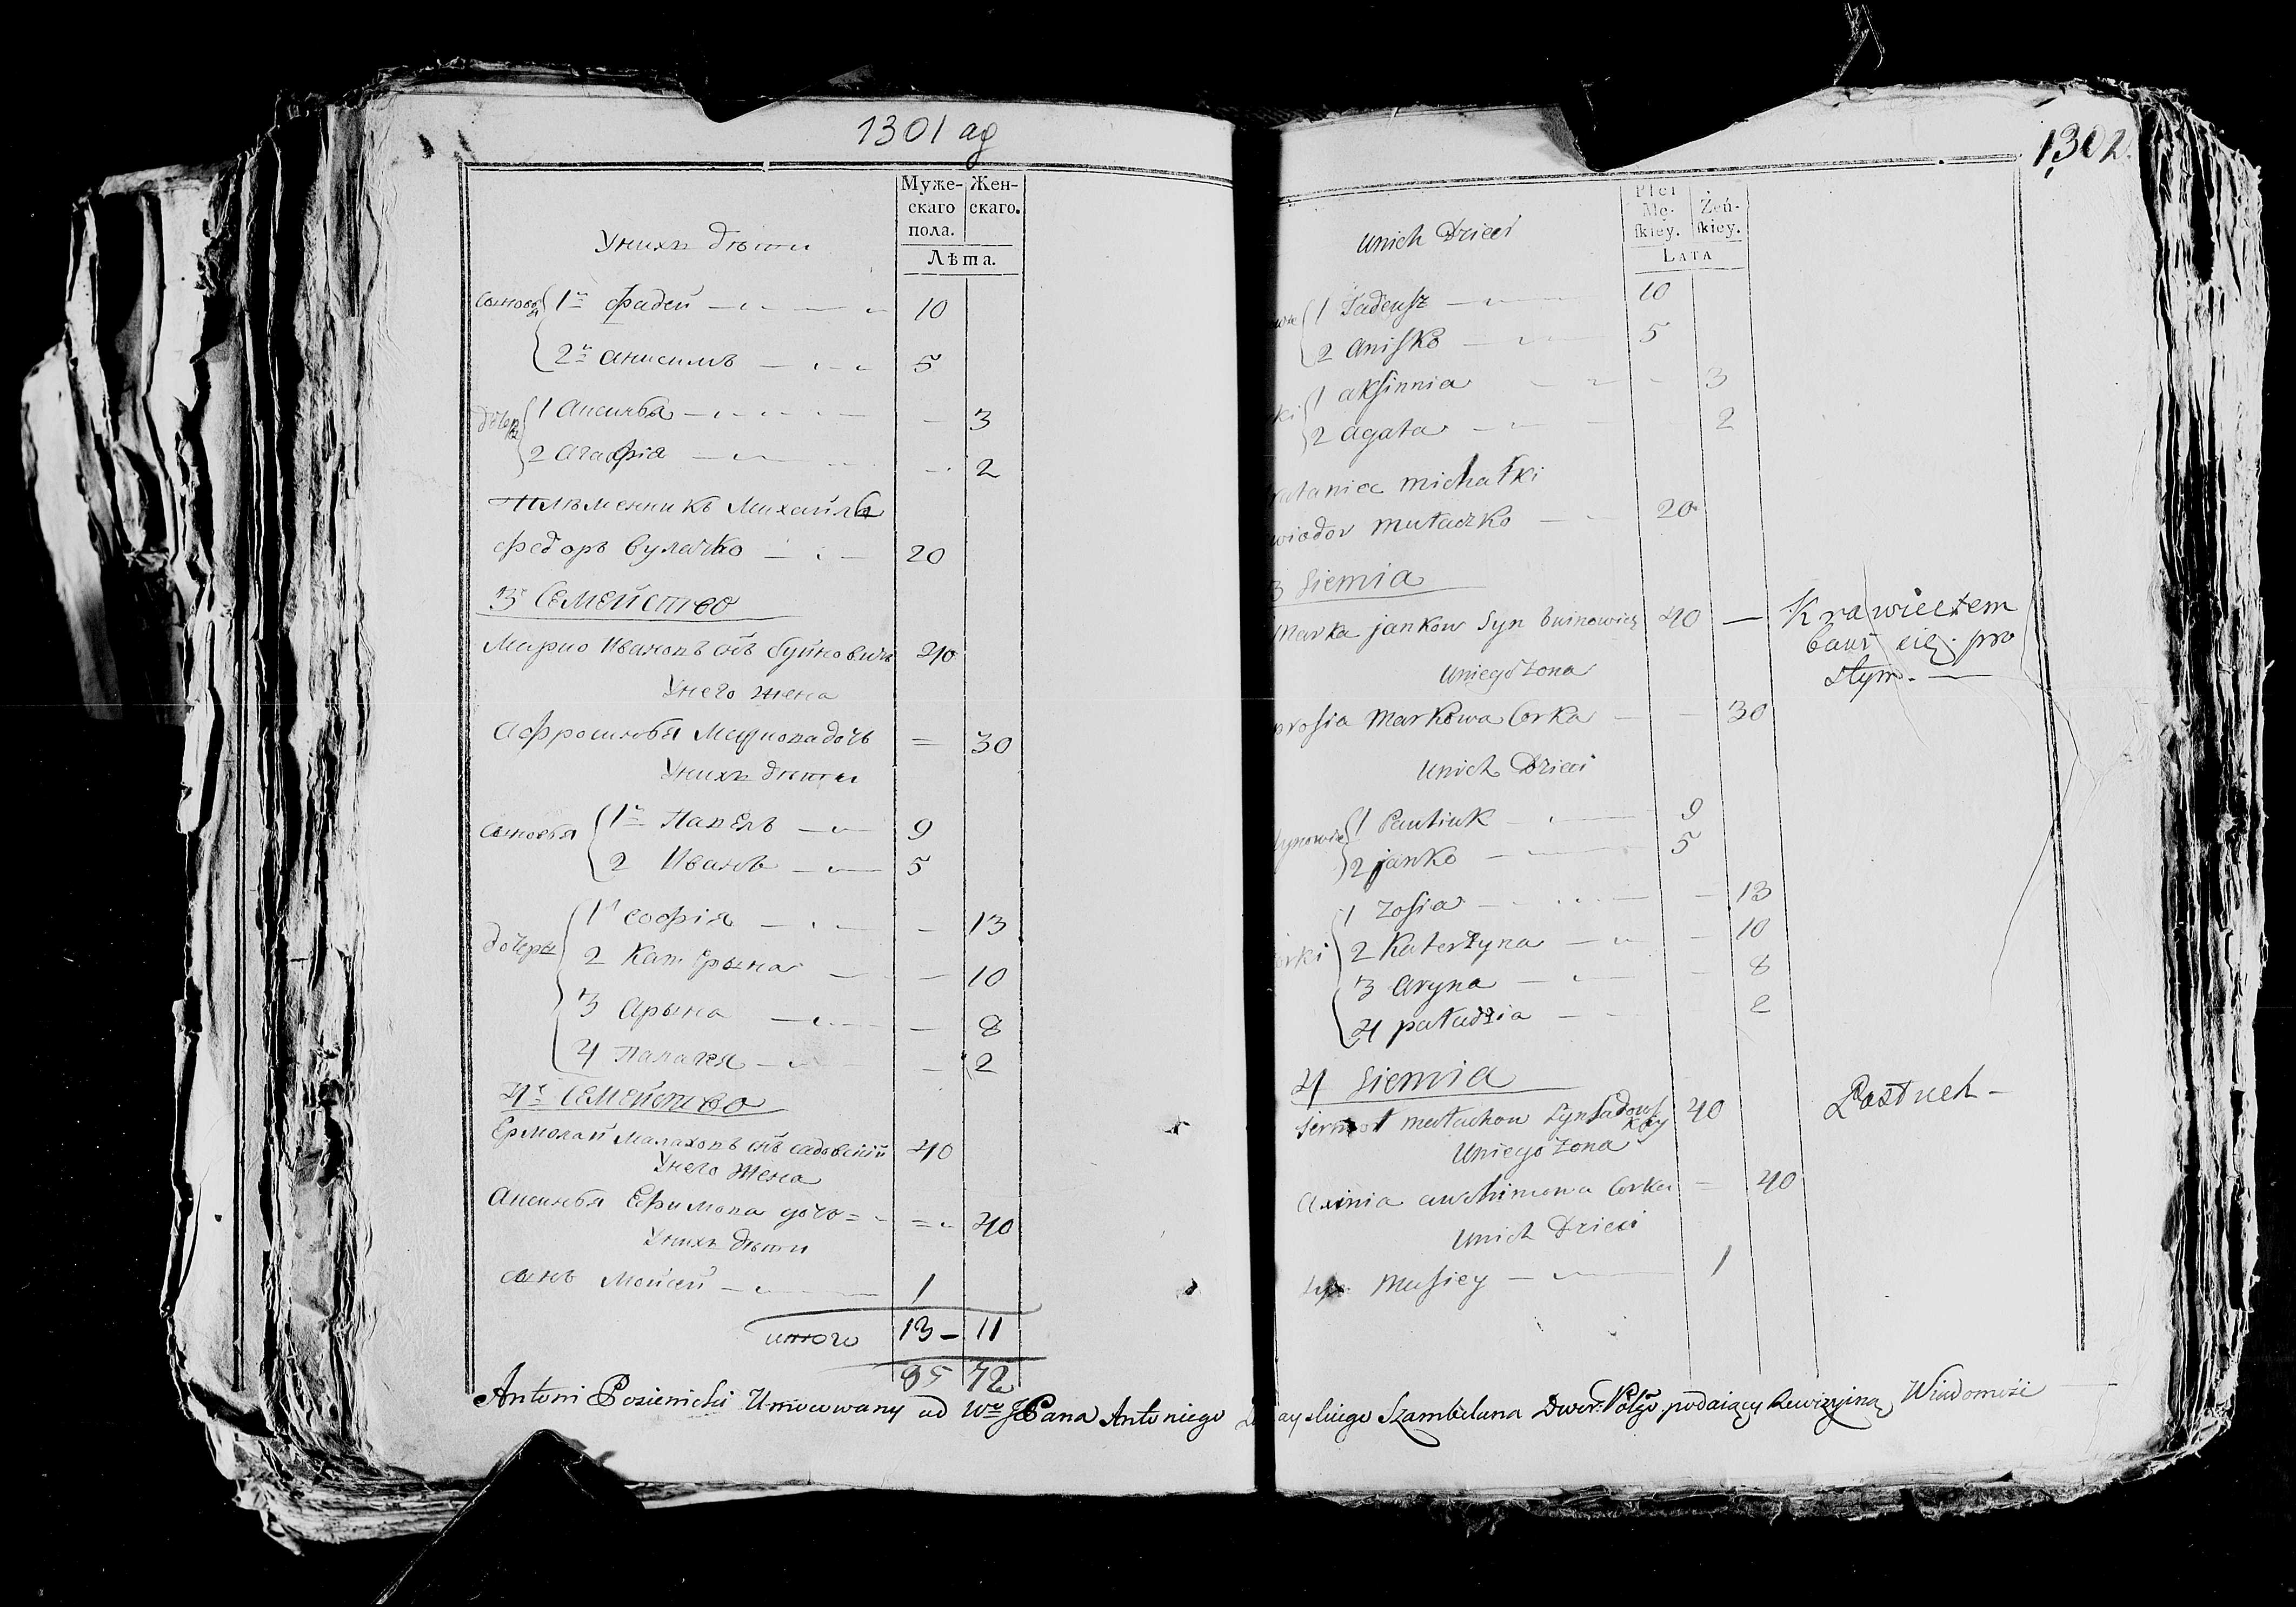 1301 ag
Муже-
скаго
пола.
Жен-
скаго.
Лѣта.
Унихъ дѣти
Сыновья 1й Фадей 10
2й Анисимъ 5
дочери 1 Аксинья 3
2 Агафія 2
Племенникъ Михайлы
Федоръ 20
3е Семейство
Марко Ивановъ сынъ Буйновичъ 40
Унего жена
Афросинья Маркова дочь 30
Унихъ дѣти
Сыновья 1й Павелъ 9
2 Иванъ 5
дочеры 1я Софія 13
2 Катерына 10
3 Арына 8
4 Палагея 2
4е Семейство
Ермолай Малаховъ сынъ Садовскій 40
Унего жена
Аксинья Ефимова дочь 40
Унихъ дѣти
сынъ Мойсей 1
итого 13 — 11
95 72
1302.
Płci
Mę-
skiey.
Żeń-
skiey.
LATA
Unich Dzieci
1 Tadeusz 10
2 Anisko 5
1 Aksinnia 3
2 Agata 2
michałki
20
3 Siemia
Marka jankow Syn buinowicz 40 — Krawiectem
bawi się pro
stym. —
Uniego żona
Markowa Corka 30
Unich Dzieci
Synowie 1 Pauluk 9
2 janko 5
1 Zosia 13
2 Katerzyna 10
3 Aryna 8
4 pałazia 2
4 Siemia
małachow Syn Sadowskiy 40 Pastuch —
Uniego żona
Axinia Corka 40
Unich Dzieci
Syn Musiey 1
Antoni Posienicki Umocowany od Wo JPana Antoniego Szambelana Dwor: Polgo podaiący Rewizyiną Wiadomość